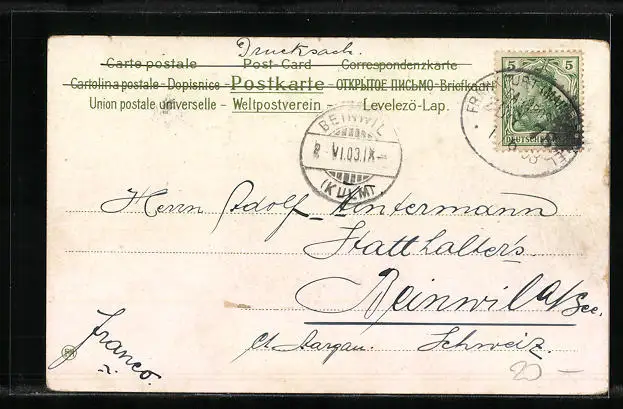 Drucksach.
Carte postale Post-Card Correspondenzkarte
Cartolina postale - Dopisnice - Postkarte - ОТКРЫТОЕ ПИСЬМО - Briefkaart
Union postale universelle - Weltpostverein - Levelező-Lap.
5 5
DEUTSCHES
BEINWIL
8 - VI.03.IX-
(KULM)
Herrn Adolf Hintermann
Statthalter's
Beinwil a/See.
Ct. Aargau. Schweiz.
Franco.
20 -